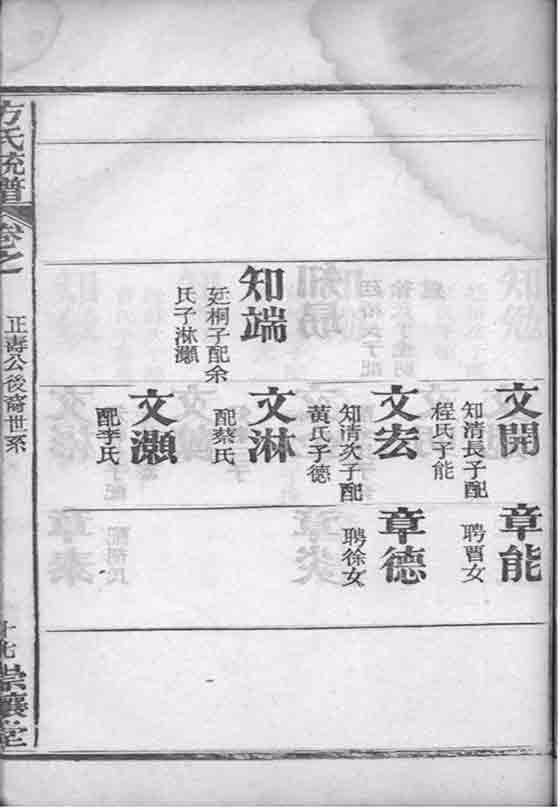 知端
廷桐子配余
氏子淋灝
文開
知清長子配
程氏子能
文宏
知清次子配
黃氏子德
文淋
配蔡氏
文灝
配李氏
章能
聘曹女
章德
聘徐女
方氏統譜
卷之
正壽公後裔世系
十七
崇讓堂